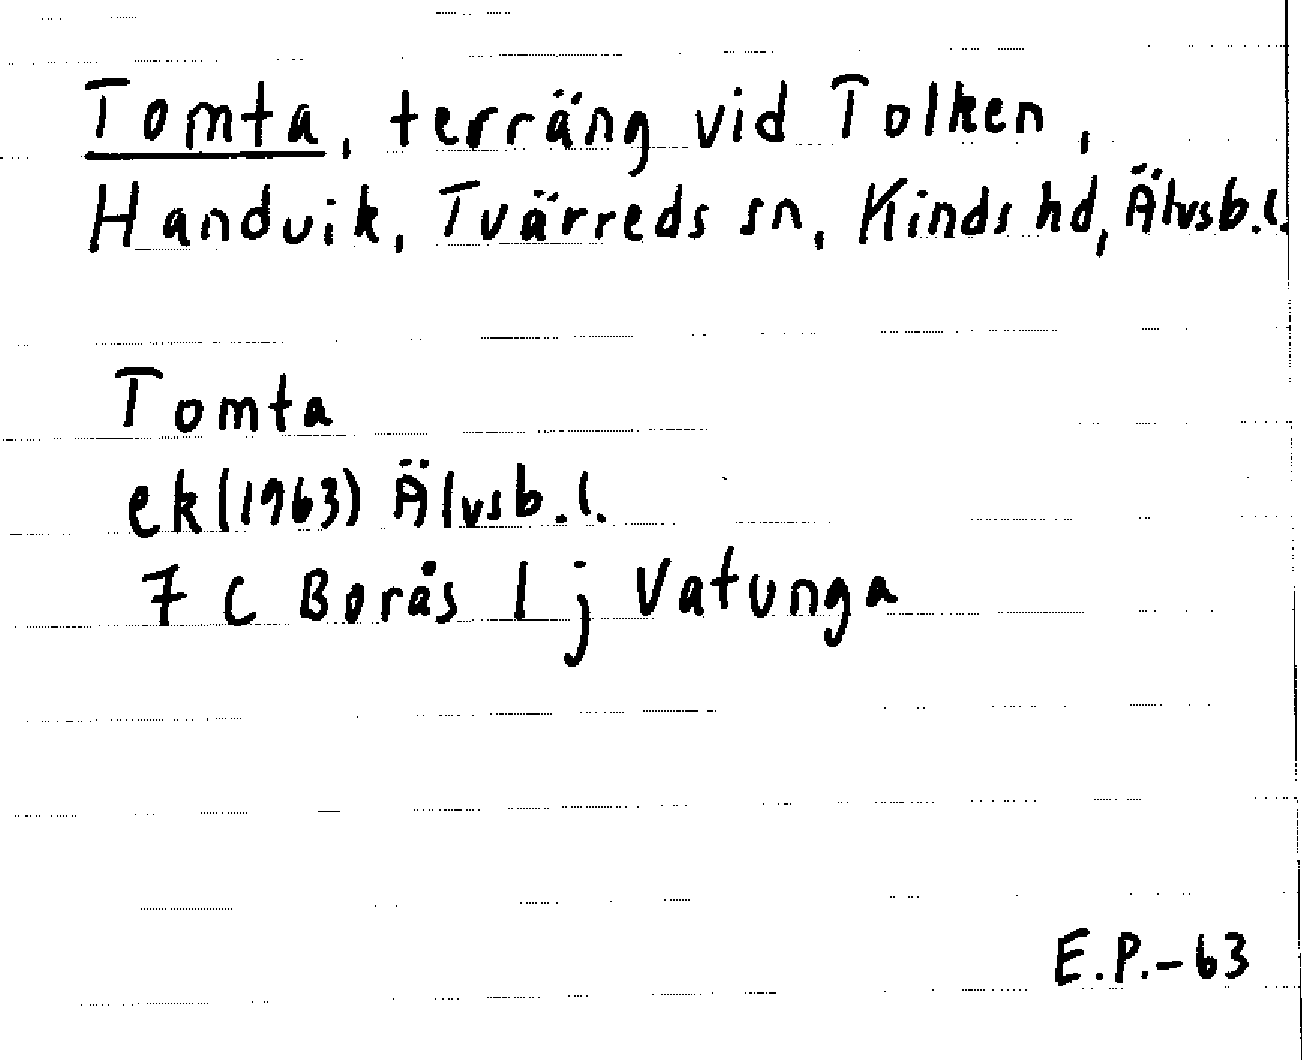 Tomta, terräng vid Tolken,
Handvik, Tvärreds sn, Kinds hd, Älvsb.l.
Tomta
ek (1963) Älvsb.l.
7 C Borås 1 j Vatunga
E.P.-63